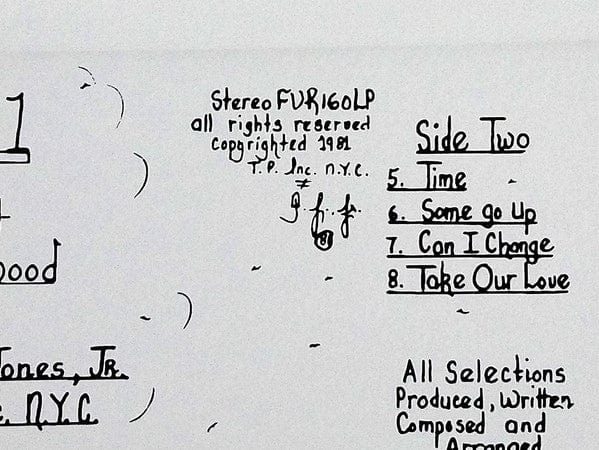 1
Stereo FUR160LP
all rights reserved
copyrighted 1981
T.P. Inc. N.Y.C.
J.f.jr.
81
ood
ones, JR.
N.Y.C
Side Two
5. Time
6. Some go Up
7. Can I Change
8. Take Our Love
All Selections
Produced, Written
Composed and
Arranged